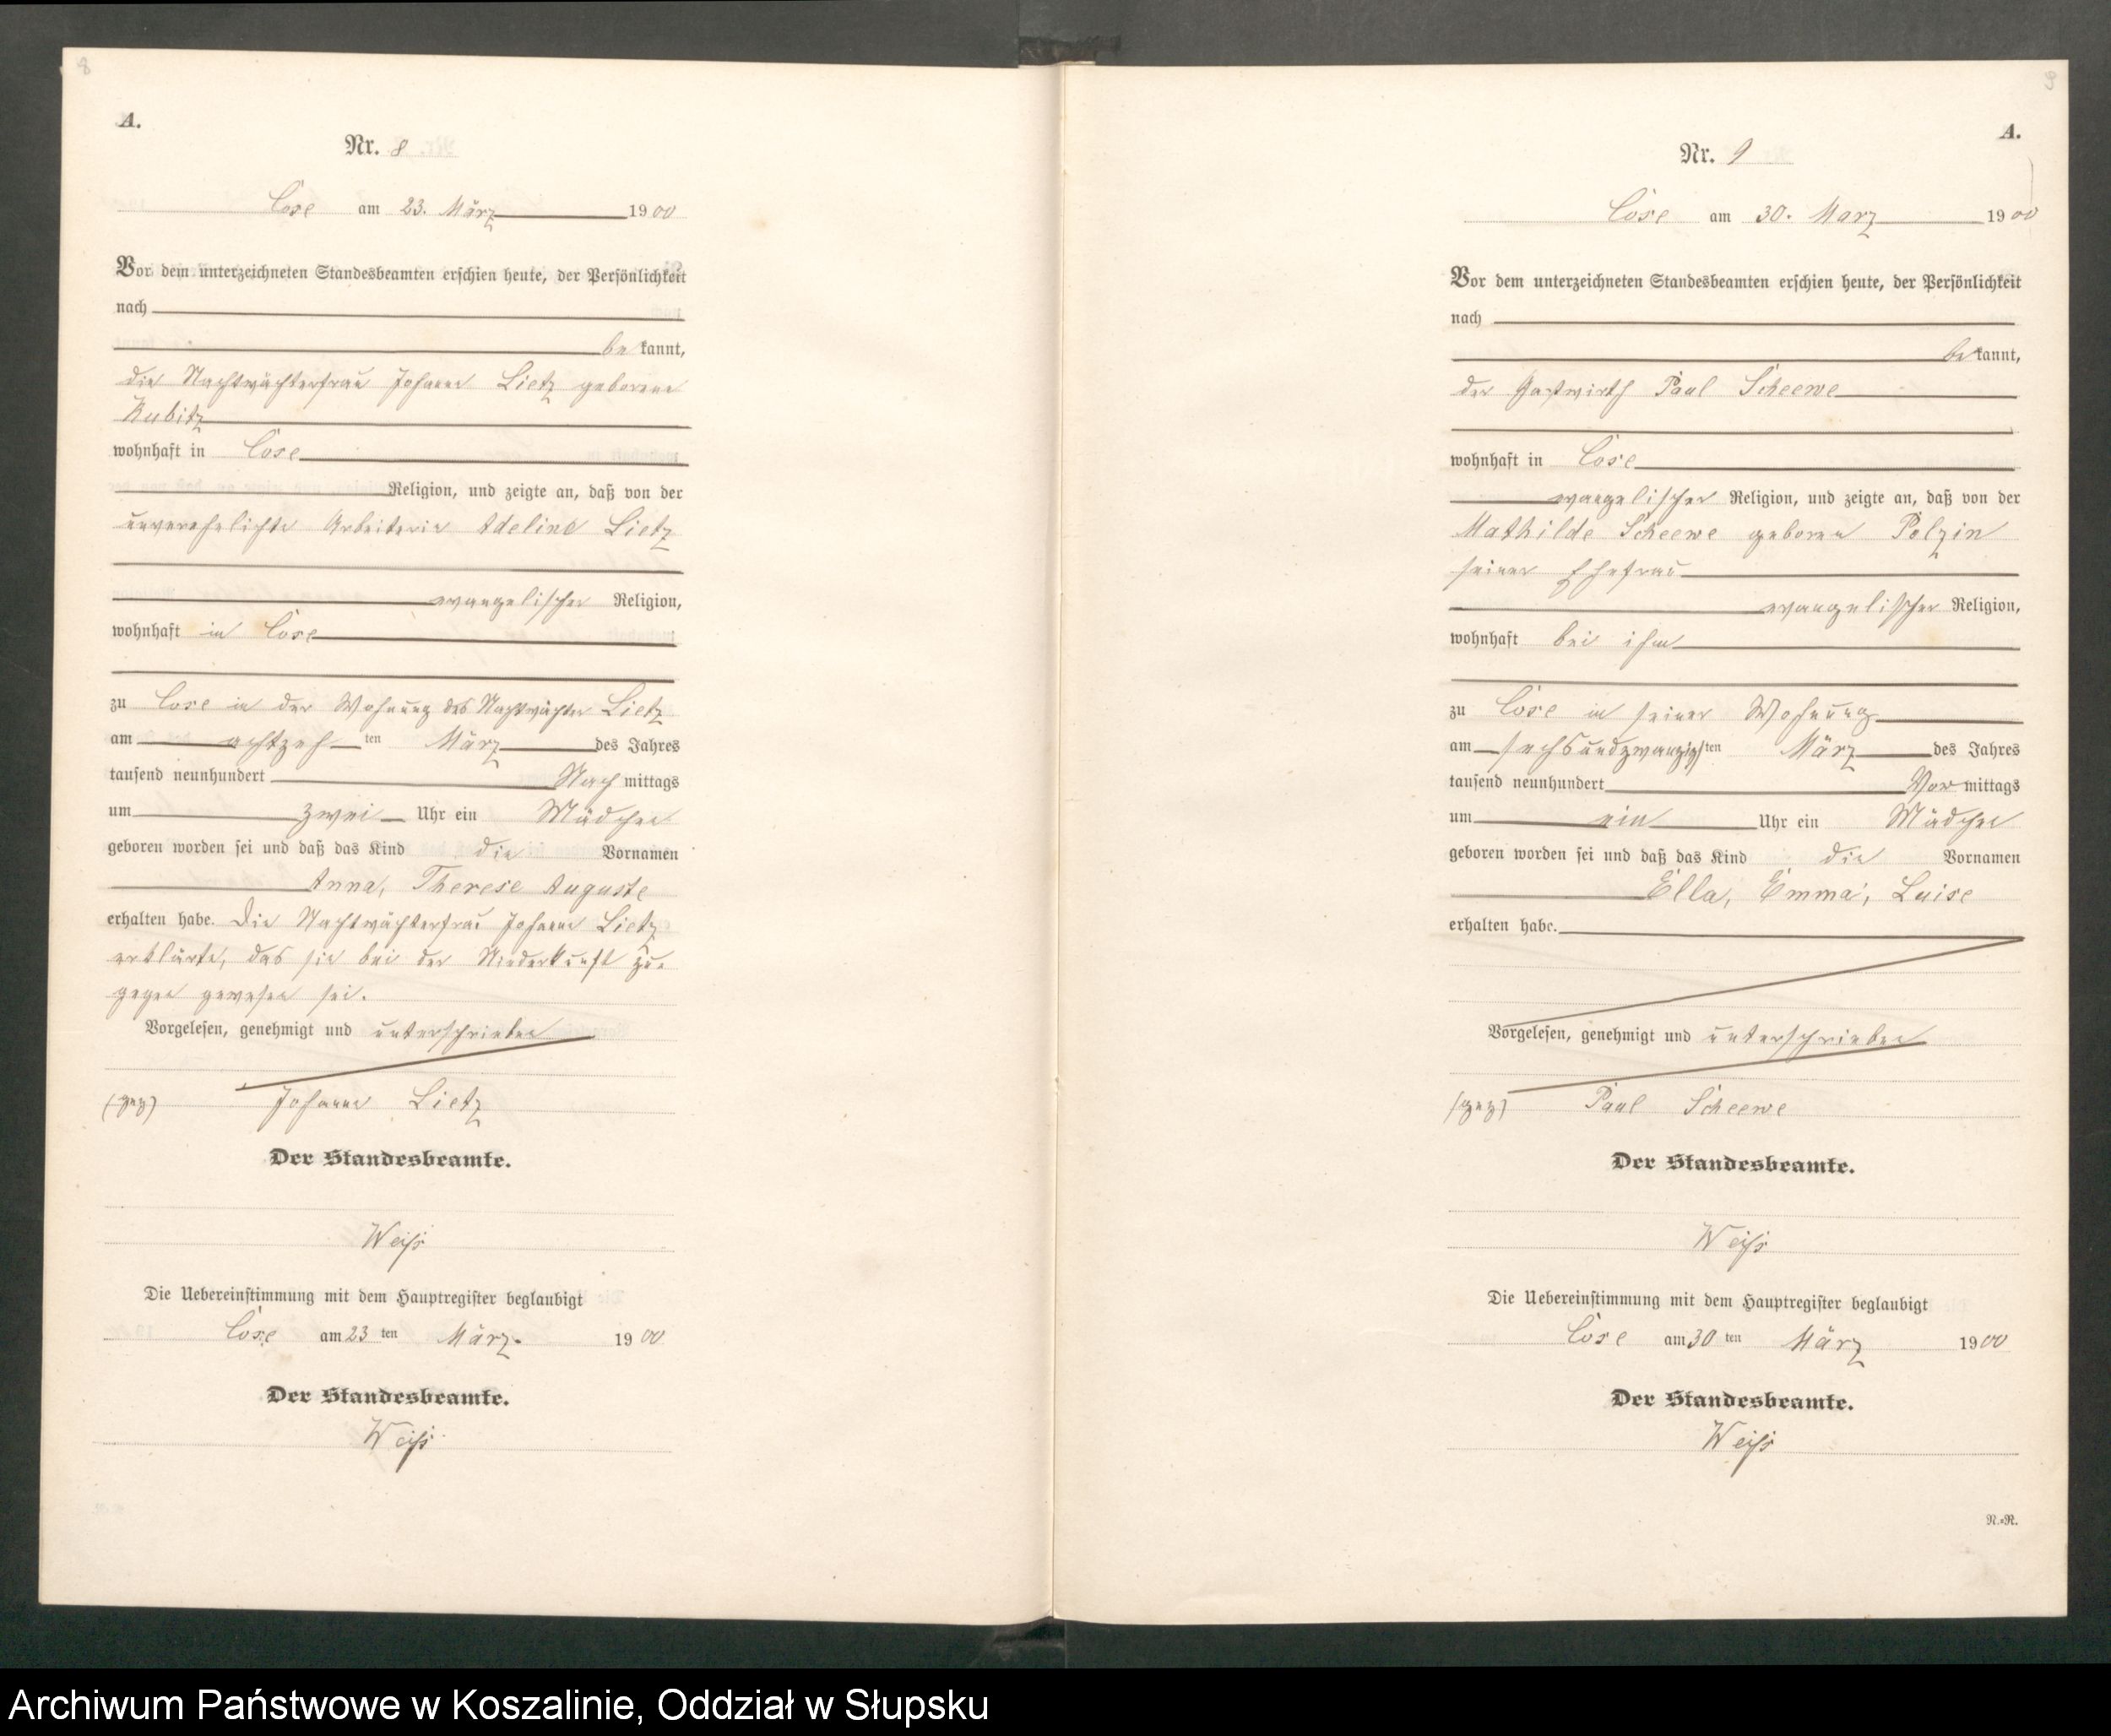 8
A.
Nr. 8
Cose am 23. März 1900
Vor dem unterzeichneten Standesbeamten erschien heute, der Persönlichkeit
nach
bekannt,
die Nachtwächterfrau Johanne Lietz geborene
Kubitz
wohnhaft in Cose
Religion, und zeigte an, daß von der
unverehelichte Arbeiterin Adeline Lietz
evangelischer Religion,
wohnhaft in Cose
zu Cose in der Wohnung des Nachtwächter Lietz
am achtzeh ten März des Jahres
tausend neunhundert Nach mittags
um zwei Uhr ein Mädchen
geboren worden sei und daß das Kind die Vornamen
Anna, Therese Auguste
erhalten habe. Die Nachtwächterfrau Johanne Lietz
erklärte, das sie bei der Niederkunft zu-
gegen gewesen sei.
Vorgelesen, genehmigt und unterschrieben
(gez) Johanne Lietz
Der Standesbeamte.
Weiß
Die Uebereinstimmung mit dem Hauptregister beglaubigt
Cose am 23 ten März. 1900
Der Standesbeamte.
Weiß
9
A.
Nr. 9
Cose am 30. März 1900
Vor dem unterzeichneten Standesbeamten erschien heute, der Persönlichkeit
nach
bekannt,
der Gastwirth Paul Scheewe
wohnhaft in Cose
evangelischer Religion, und zeigte an, daß von der
Mathilde Scheewe geboren Polzin
seiner Ehefrau
evangelischer Religion,
wohnhaft bei ihm
zu Cose in seiner Wohnung
am sechsundzwanzigsten März des Jahres
tausend neunhundert Vor mittags
um ein Uhr ein Mädchen
geboren worden sei und daß das Kind die Vornamen
Ella, Emma, Luise
erhalten habe.
Vorgelesen, genehmigt und unterschrieben
(gez) Paul Scheewe
Der Standesbeamte.
Weiß
Die Uebereinstimmung mit dem Hauptregister beglaubigt
Cose am 30 ten März 1900
Der Standesbeamte.
Weiß
N.=R.
Archiwum Państwowe w Koszalinie, Oddział w Słupsku